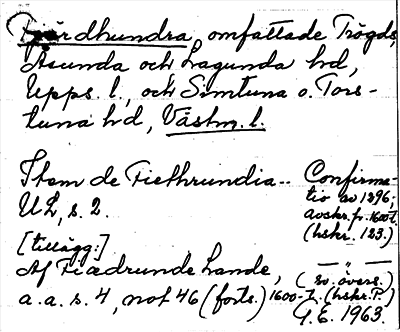 Fjärdhundra, omfattade Trögds,
Åsunda och Lagunda hd,
Upps. l., och Simtuna o. Tors-
tuna hd, Västm. l.
Item de Fiethrundia..
UL, s. 2.
Confirma-
tio av 1296;
avskr. fr. 1600-t.
(hskr. 123.)
[tillägg:]
Af Fiædrunde Lande,
a. a. s. 4, not 46 (forts.)
— " —
(sv. övers.)
1600-t. (hskr. P.)
G. E. 1963.